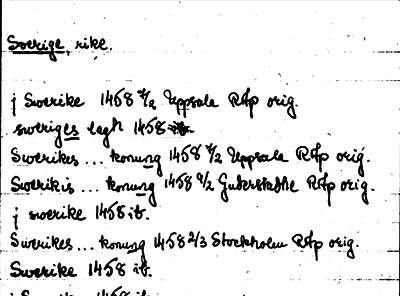 Sverige, rike.
j Swerike 1458 /2 Uppsala RAp orig.
sweriges lagh 1458
Swerikes ... konung 1458 /2 Uppsala RAp orig.
Swerikis ... konung 1458 /2 RAp orig.
j swerike 1458 ib.
Swerikes ... konung 1458 2/3 Stockholm RAp orig.
Swerike 1458 ib.
j Swerike 1458 ib.